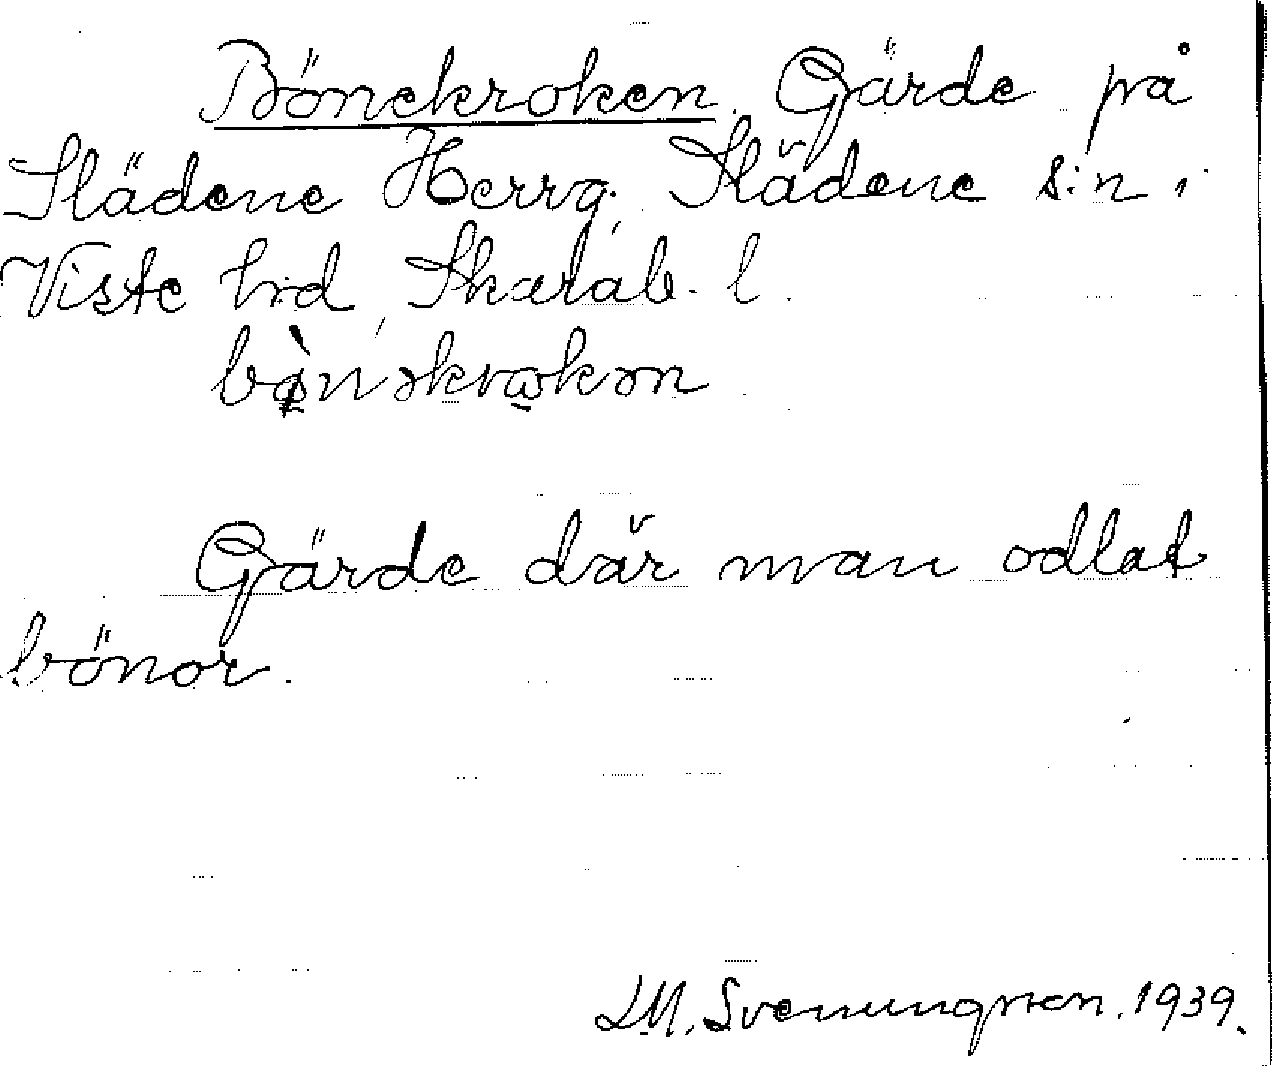 Bönekroken. Gärde på
Slädene Herrg. Slädene s:n i
Viste hrd, Skarab. l.
Gärde där man odlat
bönor.
L.M. Svenungsson. 1939.